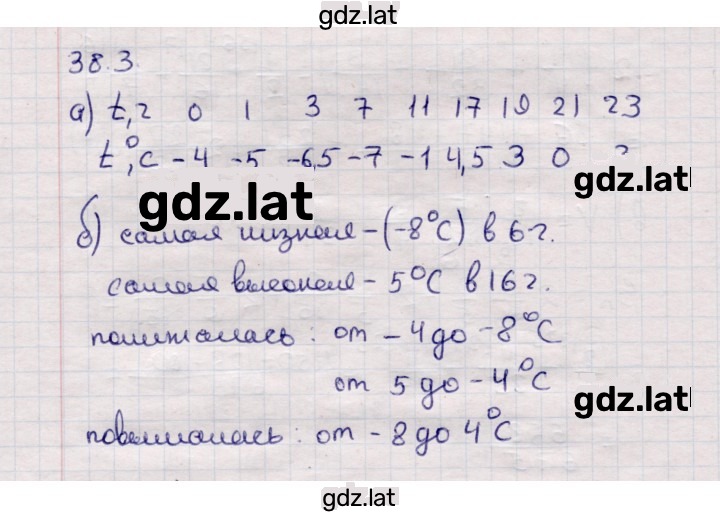 gdz.lat
38.3.
а) t,г 0 1 3 7 11 17 19 21 23
t,°C -4 -5 -6,5 -7 -1 4,5 3 0
gdz.lat
gdz.lat
б) самая низкая - (-8°C) в 6 г.
самая высокая - 5°C в 16 г.
понижалась: от -4 до -8°C
от 5 до -4°C
gdz.lat
повышалась: от -8 до 4°C
gdz.lat